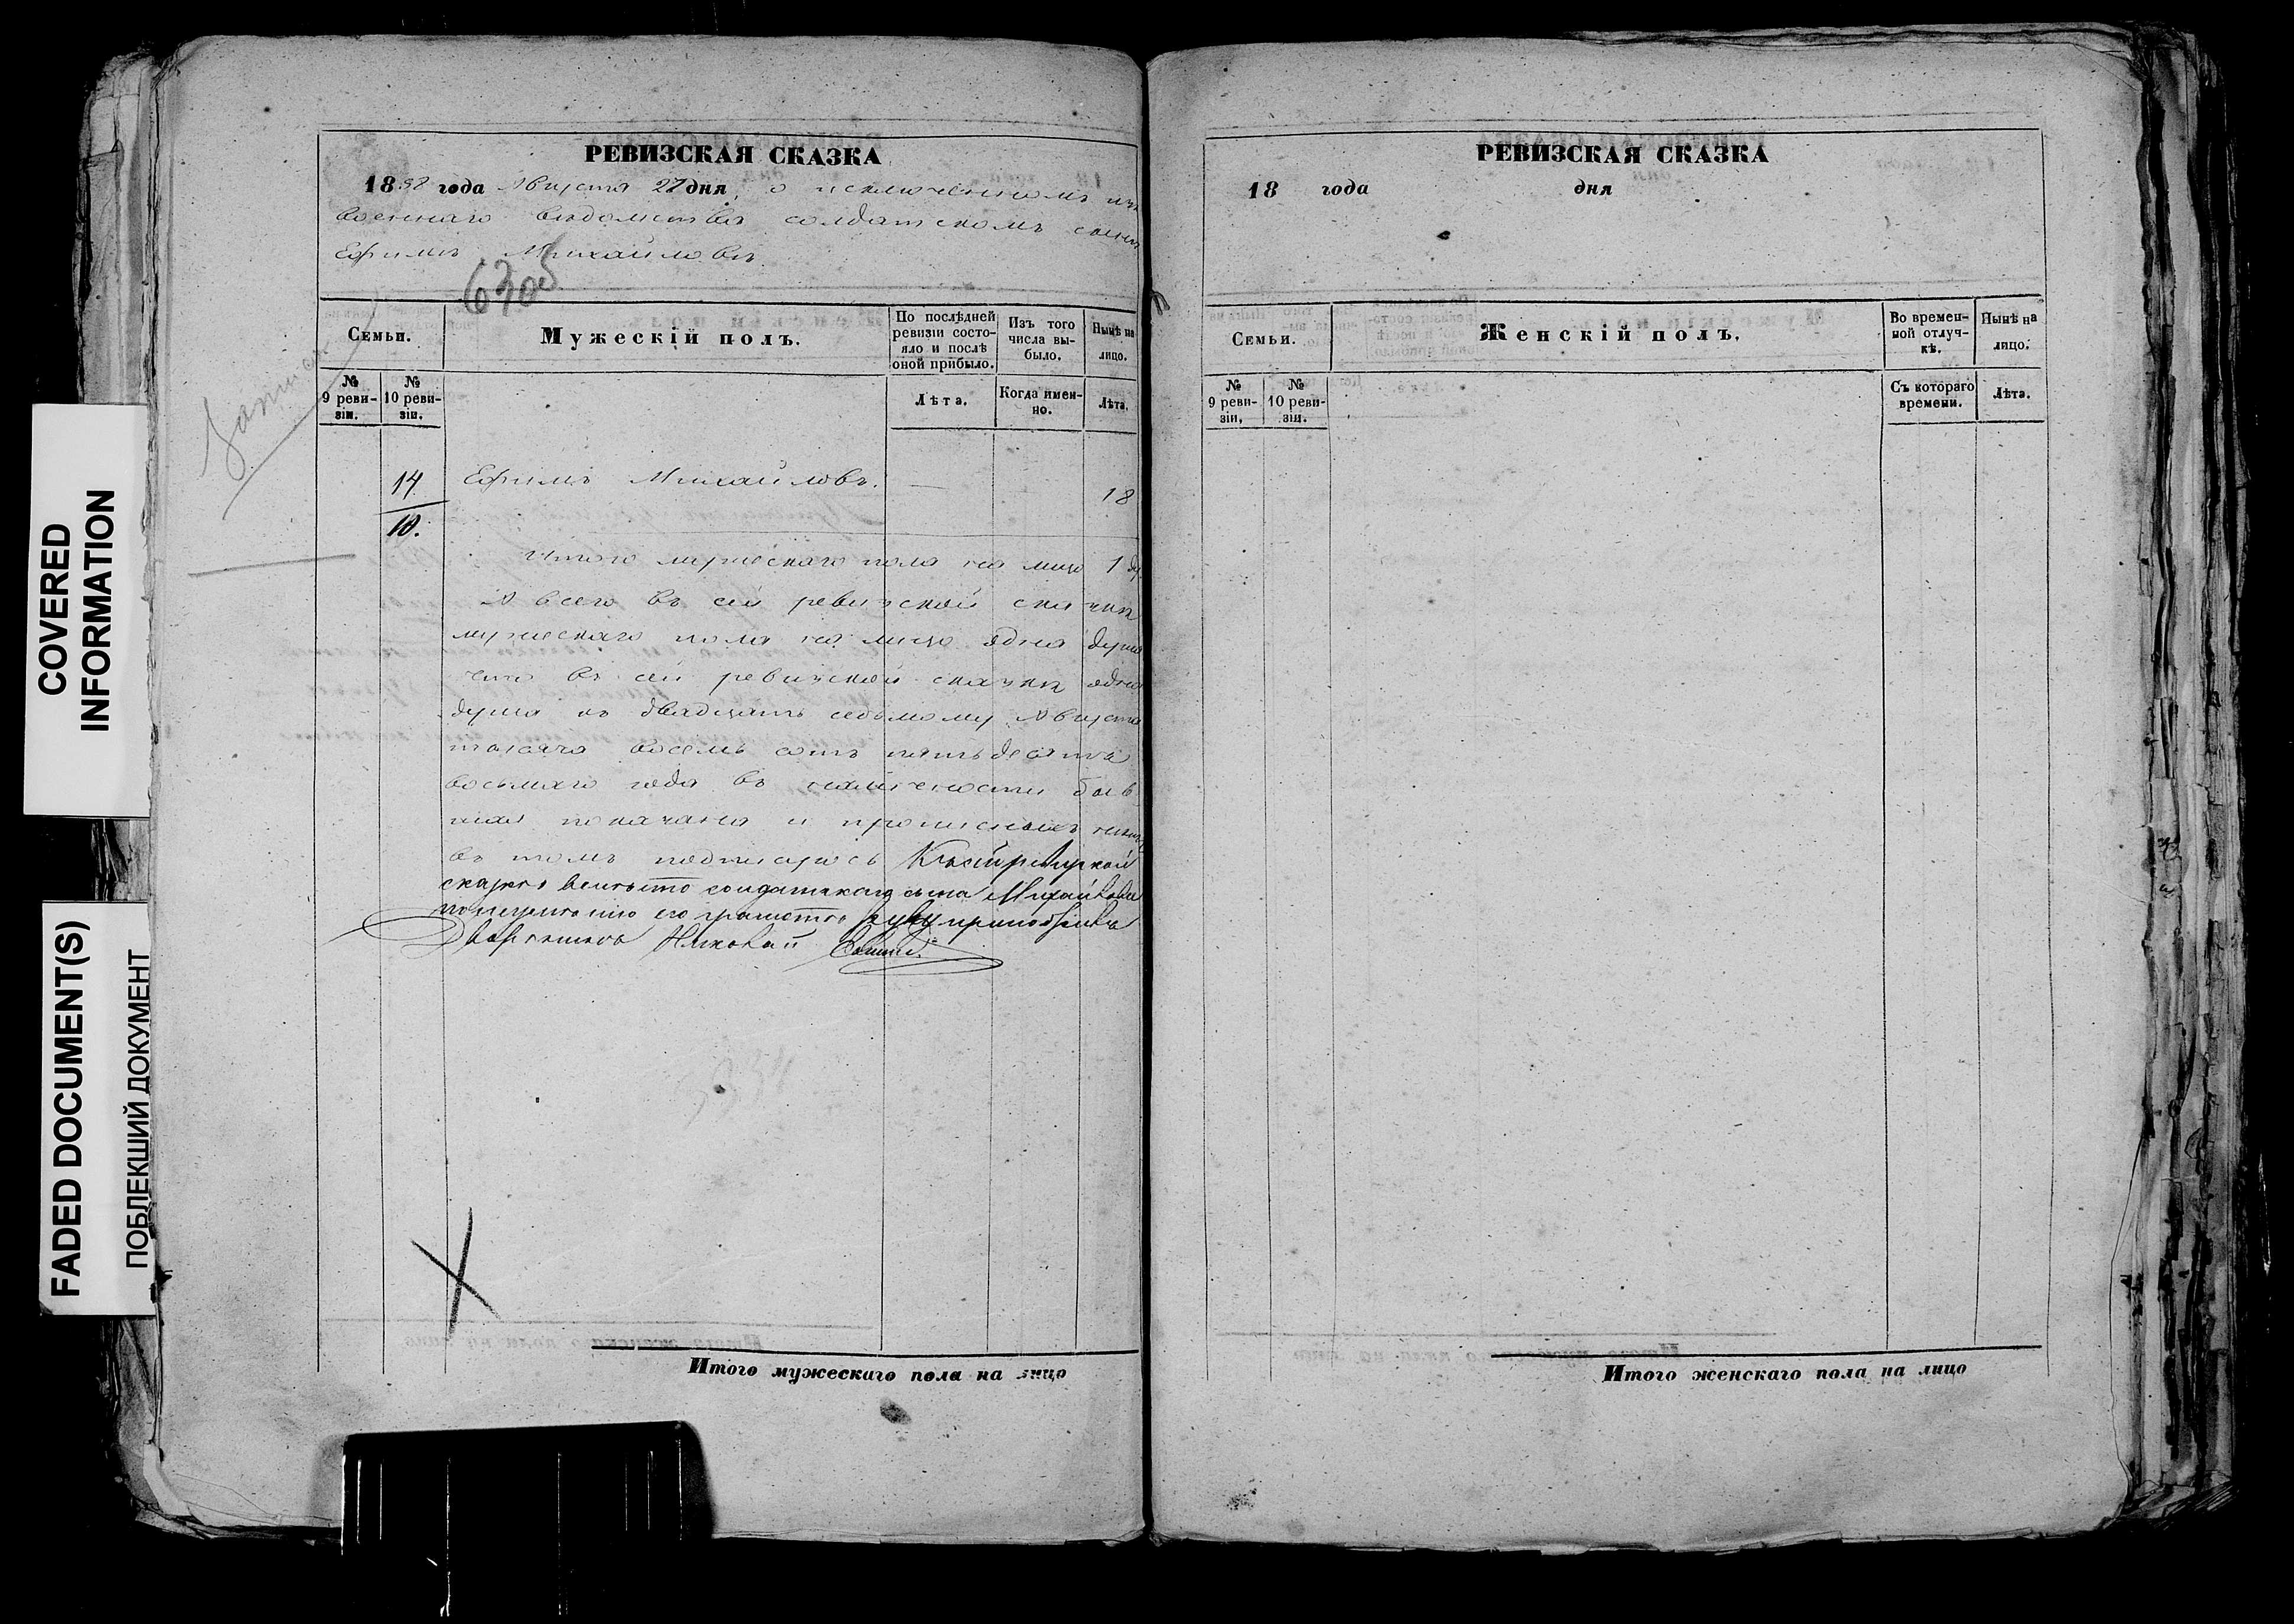 РЕВИЗСКАЯ СКАЗКА
1858 года Августа 27 дня, о исключенномъ изъ
военнаго ведомства солдатскомъ сыне
Ефимъ Михайловъ.
63об
Семьи.
Мужескій полъ.
По послѣдней ревизіи состояло и послѣ оной прибыло.
Изъ того числа выбыло.
Нынѣ на лицо.
№ 9 ревизіи.
№ 10 ревизіи.
Лѣта.
Когда именно.
Лѣта.
14 Ефимъ Михайловъ. — 18
10.
Итого мужескаго пола на лицо 1 ду.
А всего въ сей ревизской сказкѣ
мужескаго пола на лицо одна душа
что въ сей ревизской сказкѣ одна
душа къ двадцать седьмому Августа
тысяча восемь сотъ пятьдесятъ
восьмаго года въ наличности быв
шая показана и прописныхъ нѣтъ
въ томъ подписуюсь К ревизкой
сказке вместо солдатскаго сына Михайлова
руку приложилъ
Николай
Итого мужескаго пола на лицо
РЕВИЗСКАЯ СКАЗКА
18 года дня
Семьи.
Женскій полъ.
Во временной отлучкѣ.
Нынѣ на лицо.
№ 9 ревизіи.
№ 10 ревизіи.
Съ котораго времени.
Лѣта.
Итого женскаго пола на лицо
COVERED
INFORMATION
FADED DOCUMENT(S)
ПОБЛЕКШИЙ ДОКУМЕНТ